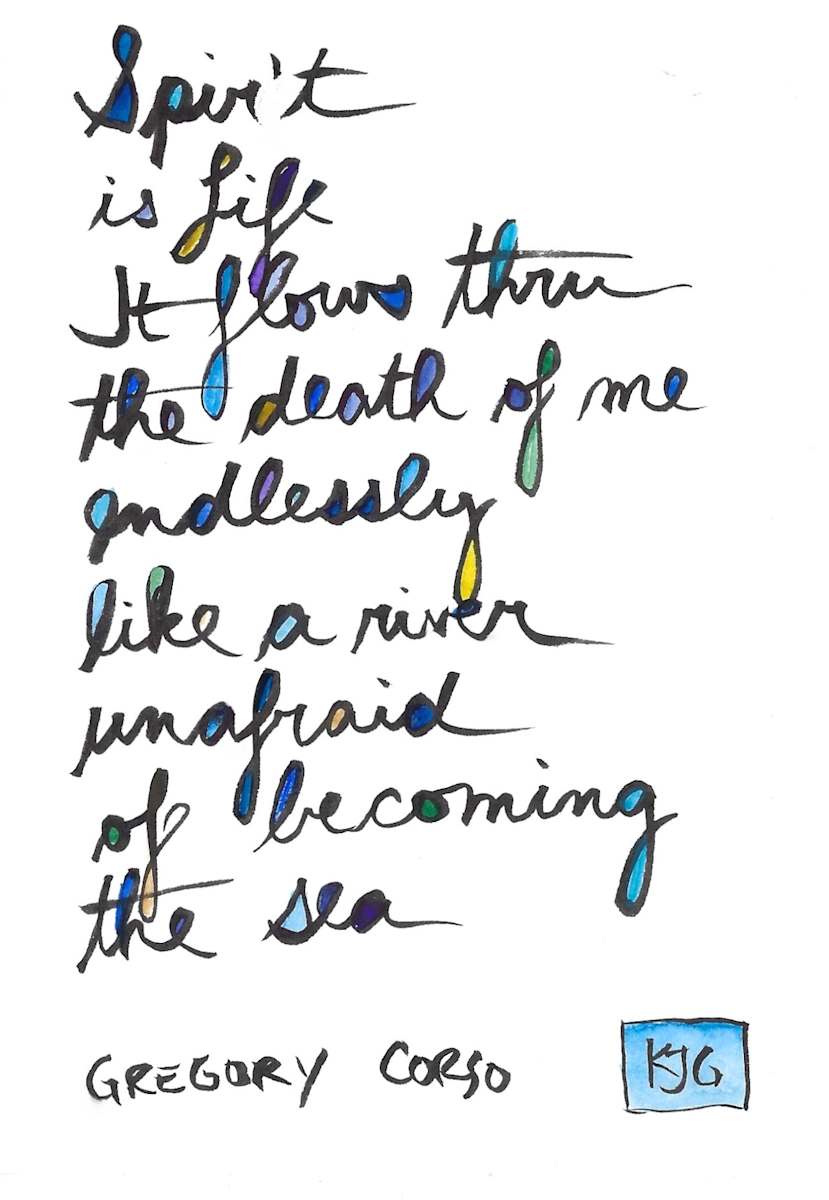 Spirit
is Life
It flows thru
the death of me
endlessly
like a river
unafraid
of becoming
the sea
GREGORY CORSO
KJG